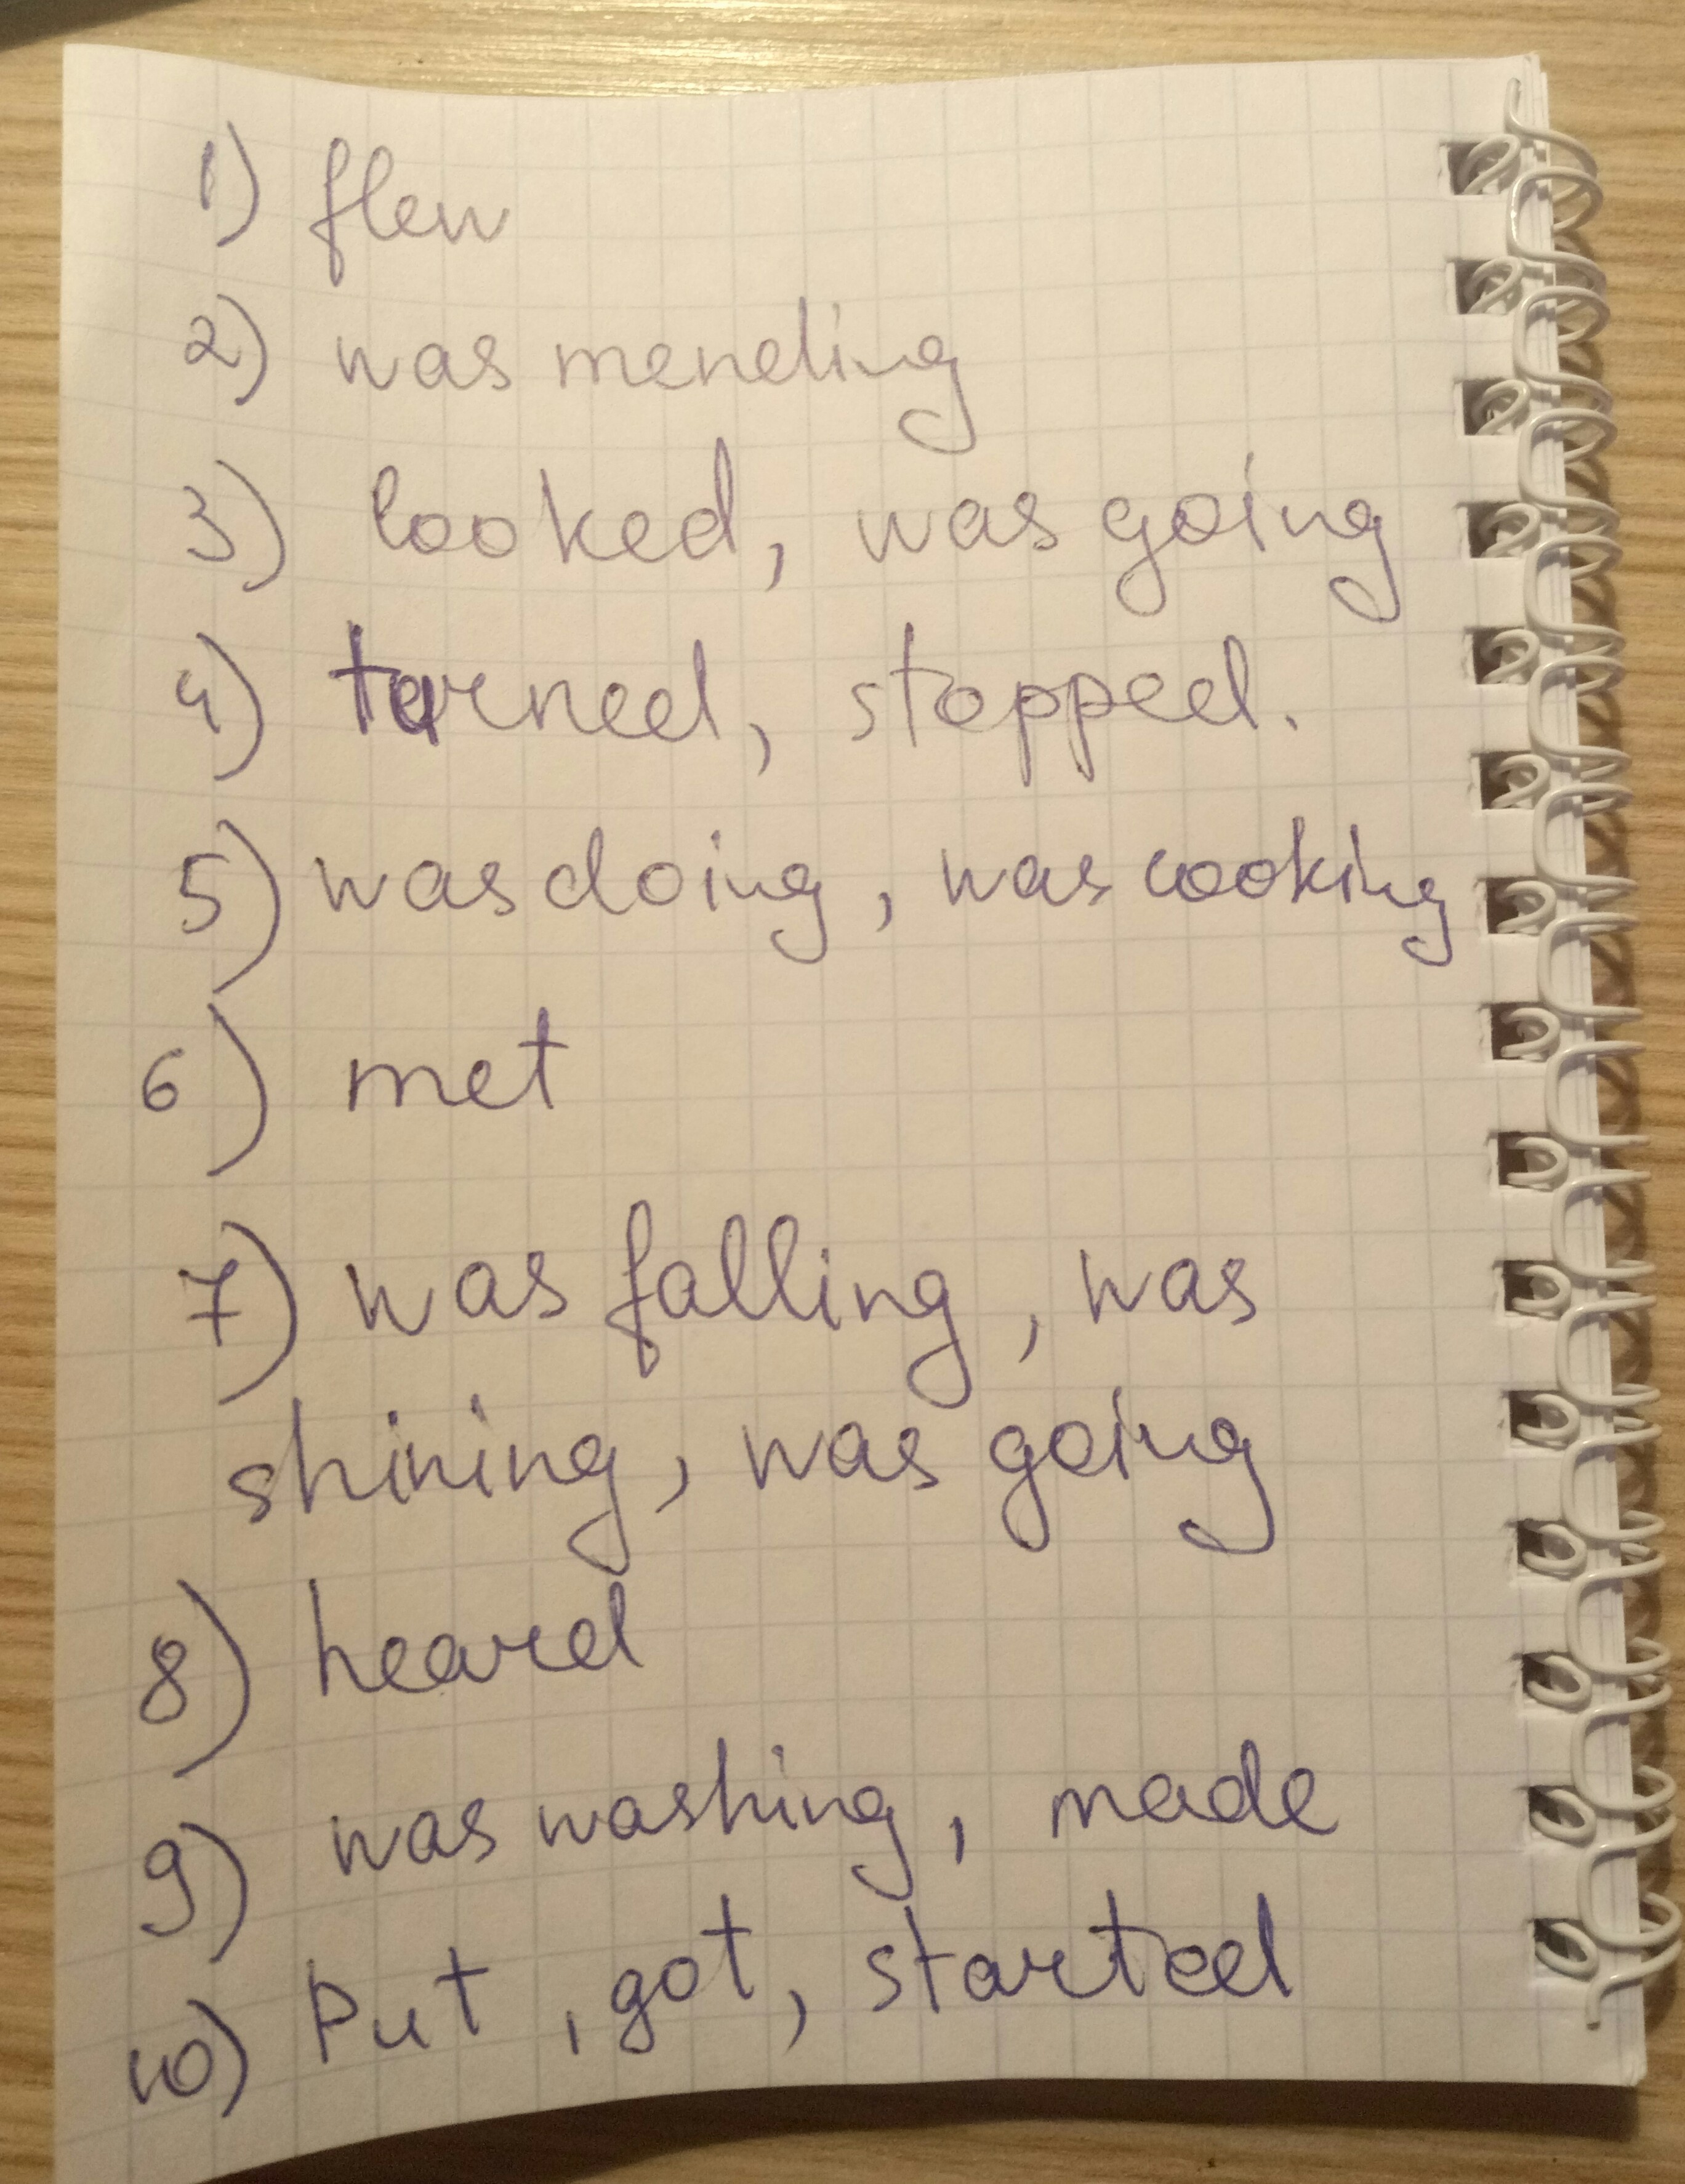 1) flew
2) was mending
3) looked, was going
4) turned, stopped.
5) was doing, was cooking
6) met
7) was falling, was
shining, was going
8) heard
9) was washing, made
10) Put, got, started